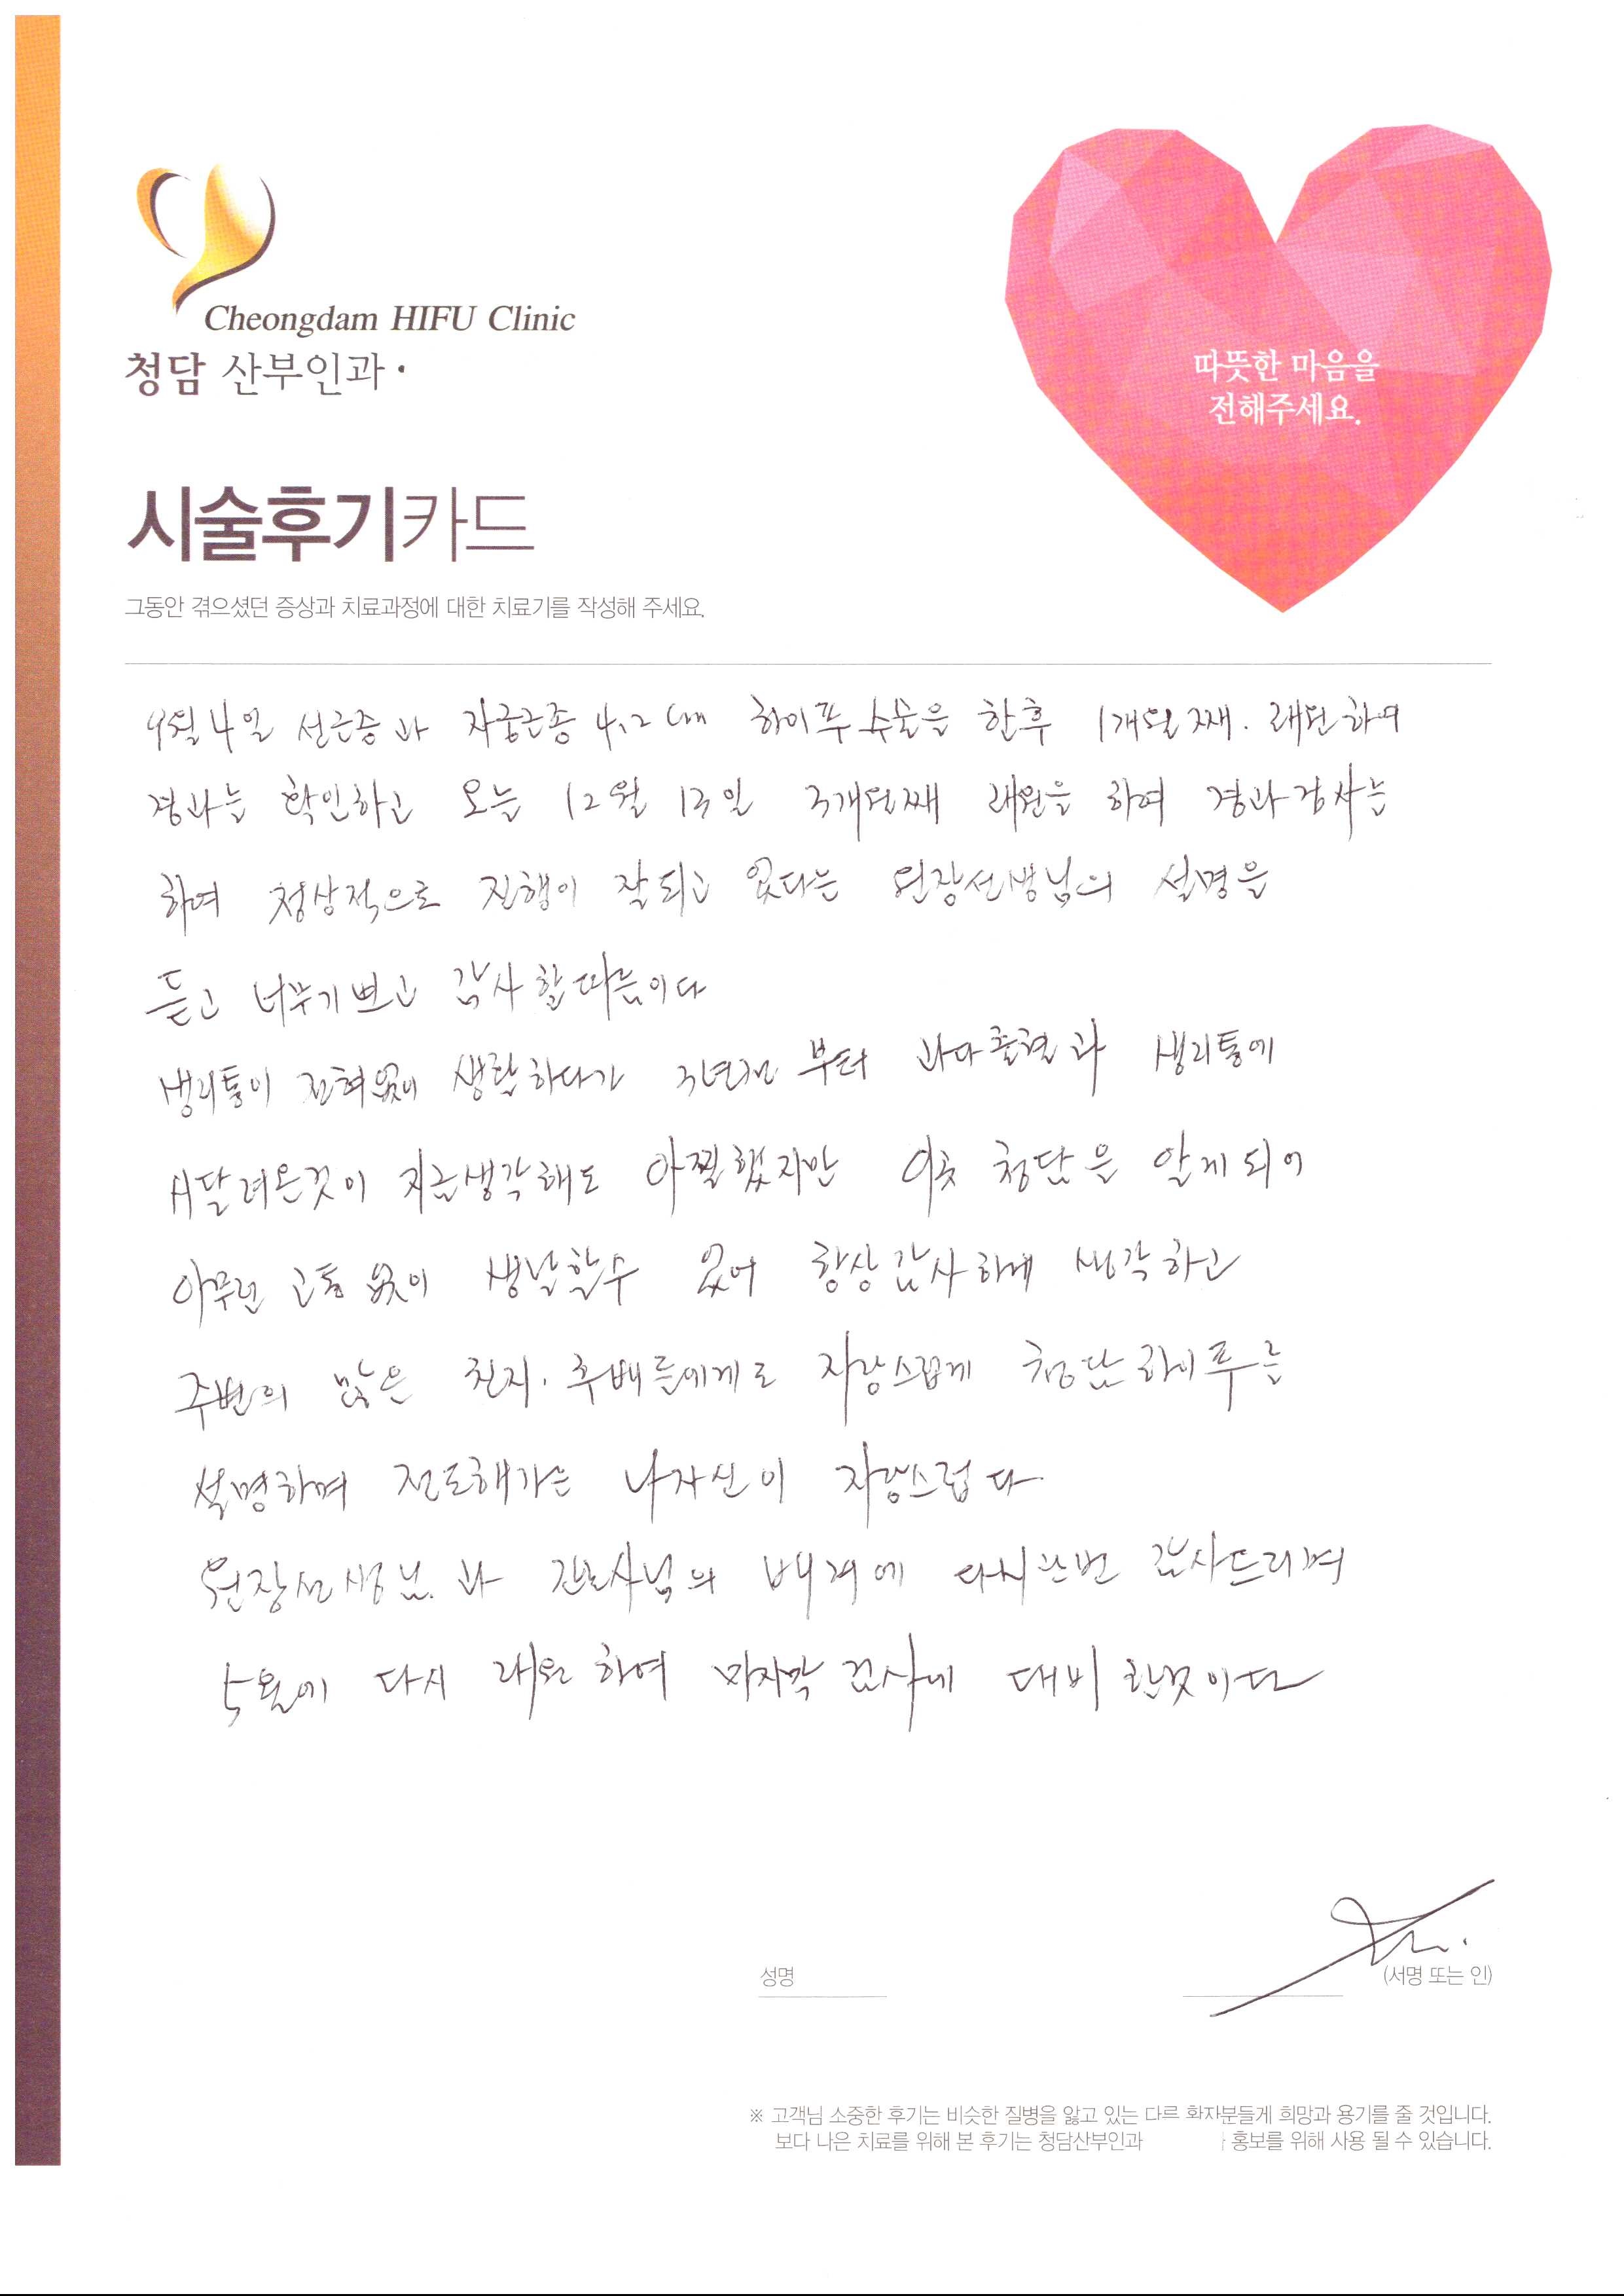 Cheongdam HIFU Clinic
청담 산부인과
따뜻한 마음을
전해주세요.
시술후기카드
그동안 겪으셨던 증상과 치료과정에 대한 치료기를 작성해 주세요.
9월 4일 선근증과 자궁근종 4.2cm 하이푸 수술을 한후 1개월째. 래원하여
경과는 확인하고 오늘 12월 13일 3개월째 래원을 하여 경과검사는
하여 정상적으로 진행이 잘되고 있다는 원장선생님의 설명을
듣고 너무기쁘고 감사할따름이다
생리통이 전혀없이 생활하다가 3년전 부터 과다출혈과 생리통에
시달려온것이 지금생각해도 아찔했지만 이곳 청담을 알게되어
아무런 고통없이 생활할수 있어 항상감사하게 생각하고
주변의 많은 친지. 후배들에게도 자랑스럽게 청담하이푸를
설명하며 전도해가는 나자신이 자랑스럽다.
원장선생님과 간호사님의 배려에 다시한번 감사드리며
5월에 다시 래원하여 마지막 검사에 대비할것이다
성명
(서명 또는 인)
※ 고객님 소중한 후기는 비슷한 질병을 앓고 있는 다른 환자분들게 희망과 용기를 줄 것입니다.
보다 나은 치료를 위해 본 후기는 청담산부인과 홍보를 위해 사용 될 수 있습니다.